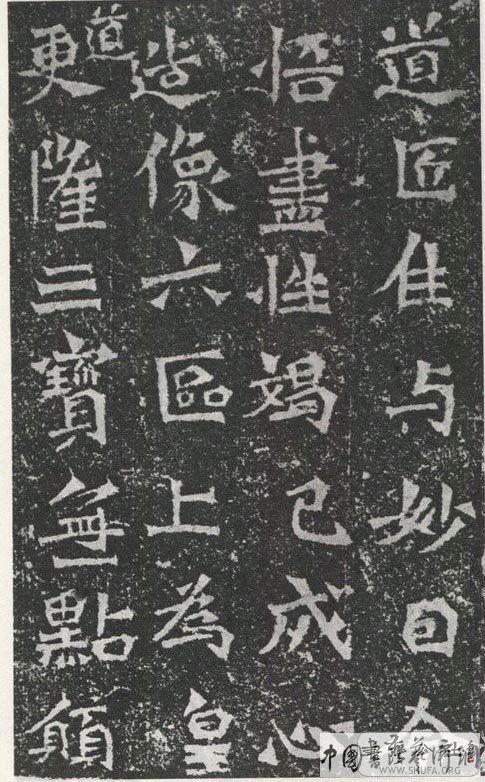 道匠与妙囙今
悟盡性竭己成心
造像六區上為皇
道
更隆三寶無點願
中國書法藝術網
WWW.SHUFA.ORG